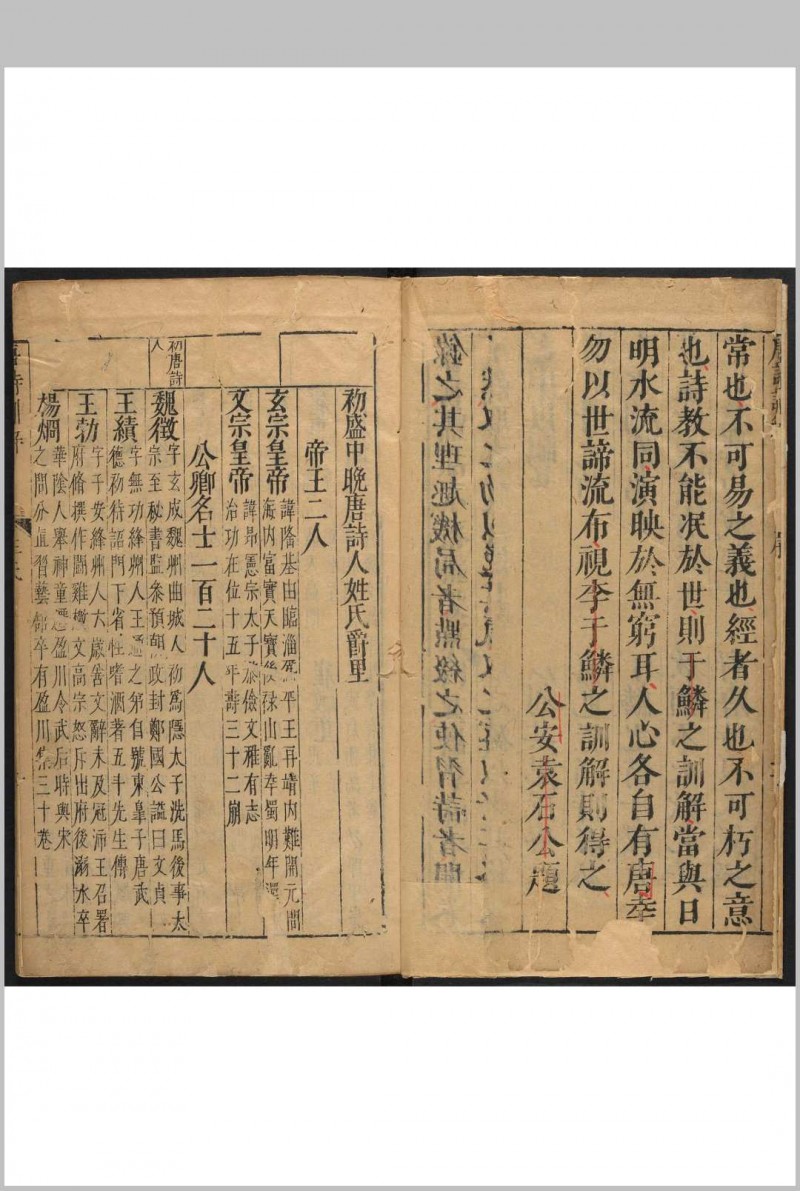 常也不可易之義也經者久也不可朽之意
也詩教不能泯於世則于鱗之訓解當與日
明水流同演映於無窮耳人心各自有唐幸
勿以世諦流布視李于鱗之訓解則得之
公安袁石公題
初盛中晚唐詩人姓氏爵里
帝王二人
玄宗皇帝
諱隆基由臨淄 平王再靖內難開元間
海內富實天寶後祿山亂幸蜀明年還
文宗皇帝
諱昂憲宗太子恭儉文雅有志
治功在位十五年壽三十二崩
公卿名士一百二十人
初唐詩
人
魏徵
字玄成魏州曲城人初爲隱太子洗馬後事太
宗至秘書監參預朝政封鄭國公謚曰文貞
王績
字無功絳州人王通之弟自號東臯子唐武
德初待詔門下省性嗜酒著五斗先生傳
王勃
字子安絳州人六歲善文辭未及冠沛王召署
府脩撰作鬬雞檄文高宗怒斥出府後溺水卒
楊烱
華陰人舉神童遷盈川令武后時與宋
之問分直習藝館卒有盈川集三十卷